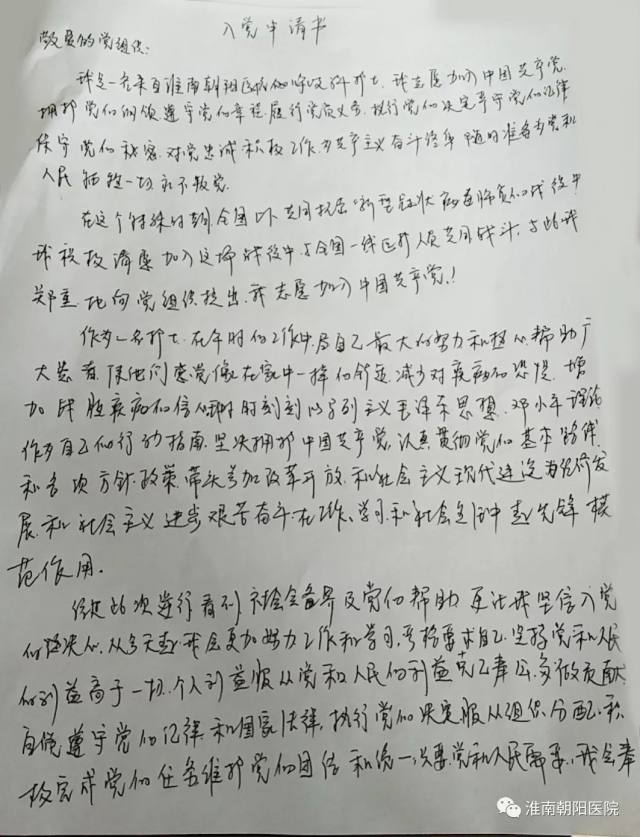 入党申请书
敬爱的党组织:
我是一名来自淮南朝阳医院的呼吸科护士,我志愿加入中国共产党,
拥护党的纲领遵守党的章程,履行党员义务,执行党的决定,严守党的纪律
保守党的秘密,对党忠诚积极工作,为共产主义奋斗终身,随时准备为党和
人民牺牲一切,永不叛党。
在这个特殊时期,全国上下共同抗击“新型冠状病毒肺炎”的战役中
我积极请愿加入这场战役中,与全国一线医护人员共同战斗,与此我
郑重地向党组织提出,我志愿加入中国共产党!
作为一名护士,在平时的工作中,尽自己最大的努力和热心帮助广
大患者,使他们感觉像在家中一样的舒适,减少对疾病的恐惧,增
加战胜疾病的信心,时时刻刻以马列主义毛泽东思想,邓小平理论
作为自己的行动指南,坚决拥护中国共产党,认真贯彻党的基本路线
和各项方针政策,带头参加改革开放,和社会主义现代建设,为经济发
展,和社会主义进步艰苦奋斗,在工作,学习,和社会生活中起先锋模
范作用。
经过此次逆行看到社会各界及党的帮助,更让我坚信入党
的决心,从今天起,我会更加努力工作和学习,严格要求自己,坚持党和人民
的利益高于一切,个人利益服从党和人民的利益,克己奉公,多做贡献
自觉遵守党的纪律和国家法律,执行党的决定,服从组织分配,积
极完成党的任务,维护党的团结和统一,只要党和人民需要,我会奉
淮南朝阳医院